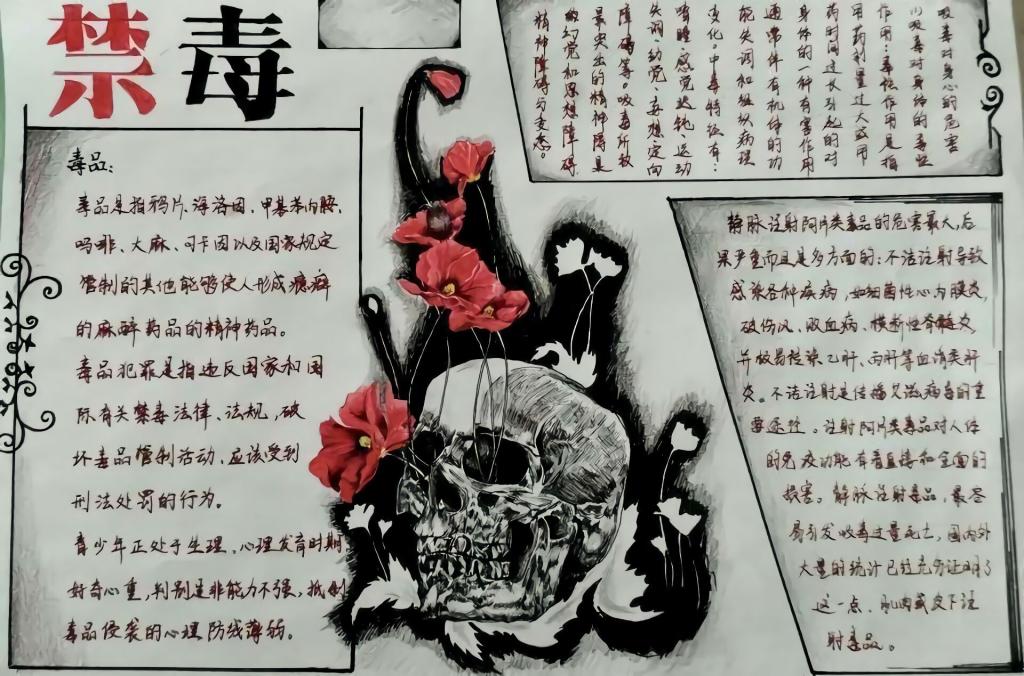 禁毒
毒品:
毒品是指鸦片、海洛因、甲基苯丙胺、
吗啡、大麻、可卡因以及国家规定
管制的其他能够使人形成瘾癖
的麻醉药品的精神药品。
毒品犯罪是指违反国家和国
际有关禁毒法律、法规,破
坏毒品管制活动、应该受到
刑法处罚的行为。
青少年正处于生理、心理发育时期
好奇心重,判别是非能力不强,抵制
毒品侵袭的心理防线薄弱。
吸毒对身心的危害
(1)吸毒对身体的毒性
作用:毒性作用是指
用药剂量过大或用
药时间过长引起的对
身体的一种有害作用
通常伴有机体的功
能失调和组织病理
变化。中毒特征有:
嗜睡、感觉迟钝、运动
失调、幻觉、妄想、定向
障碍等。吸毒所致
最突出的精神障碍是
幻觉和思想障碍
精神障碍与变态。
静脉注射阿片类毒品的危害最大,后
果严重而且是多方面的:不洁注射导致
感染各种疾病,如细菌性心内膜炎,
破伤风、败血病、横断性脊髓炎
并极易传染乙肝、丙肝等血清类肝
炎。不洁注射是传播艾滋病毒的重
要途径。注射阿片类毒品对人体
的免疫功能有着直接和全面的
损害。静脉注射毒品,最容
易引发吸毒过量死亡,国内外
大量的统计已经充分证明了
这一点,肌肉或皮下注
射毒品。